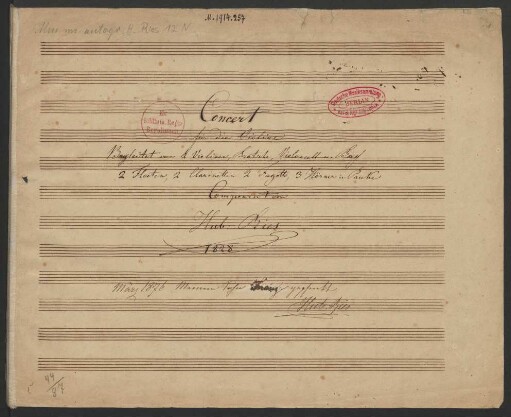 Mus. ms. autogr. H. Ries 12 N
M. 1914.257
Concert
für die Violine
Begleitet von 2 Violinen, Bratsche, Violoncell u. Bass
2 Flöten, 2 Clarinetten 2 Fagotti, 3 Hörner u. Pauke
Componirt von
Hub. Ries
1828
März 1876 Meinem Sohn Franz geschenkt
Hub. Ries